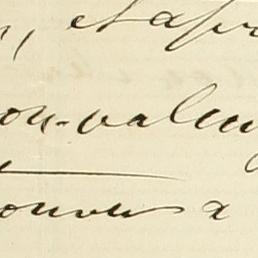 , et apr
on-valeu
ouver a